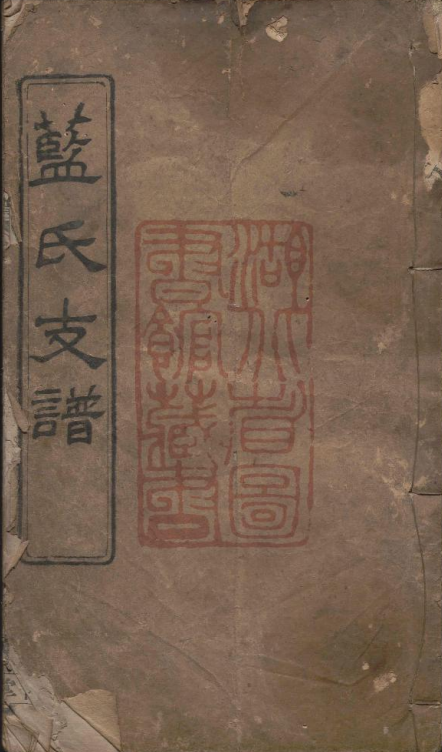 藍氏支譜
湖北省圖
書館藏書